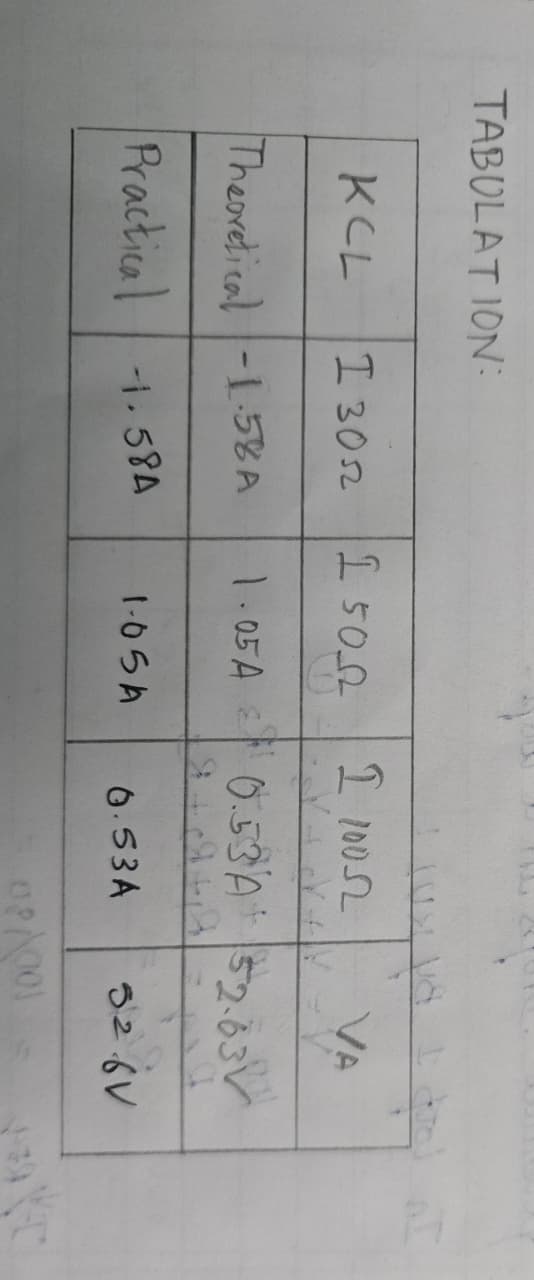 TABULATION:
KCL I 30Ω I 50Ω I 100Ω VA
Theoretical -1.58A 1.05A 0.53A 52.63V
Practical -1.58A 1.05A 0.53A 52.6V